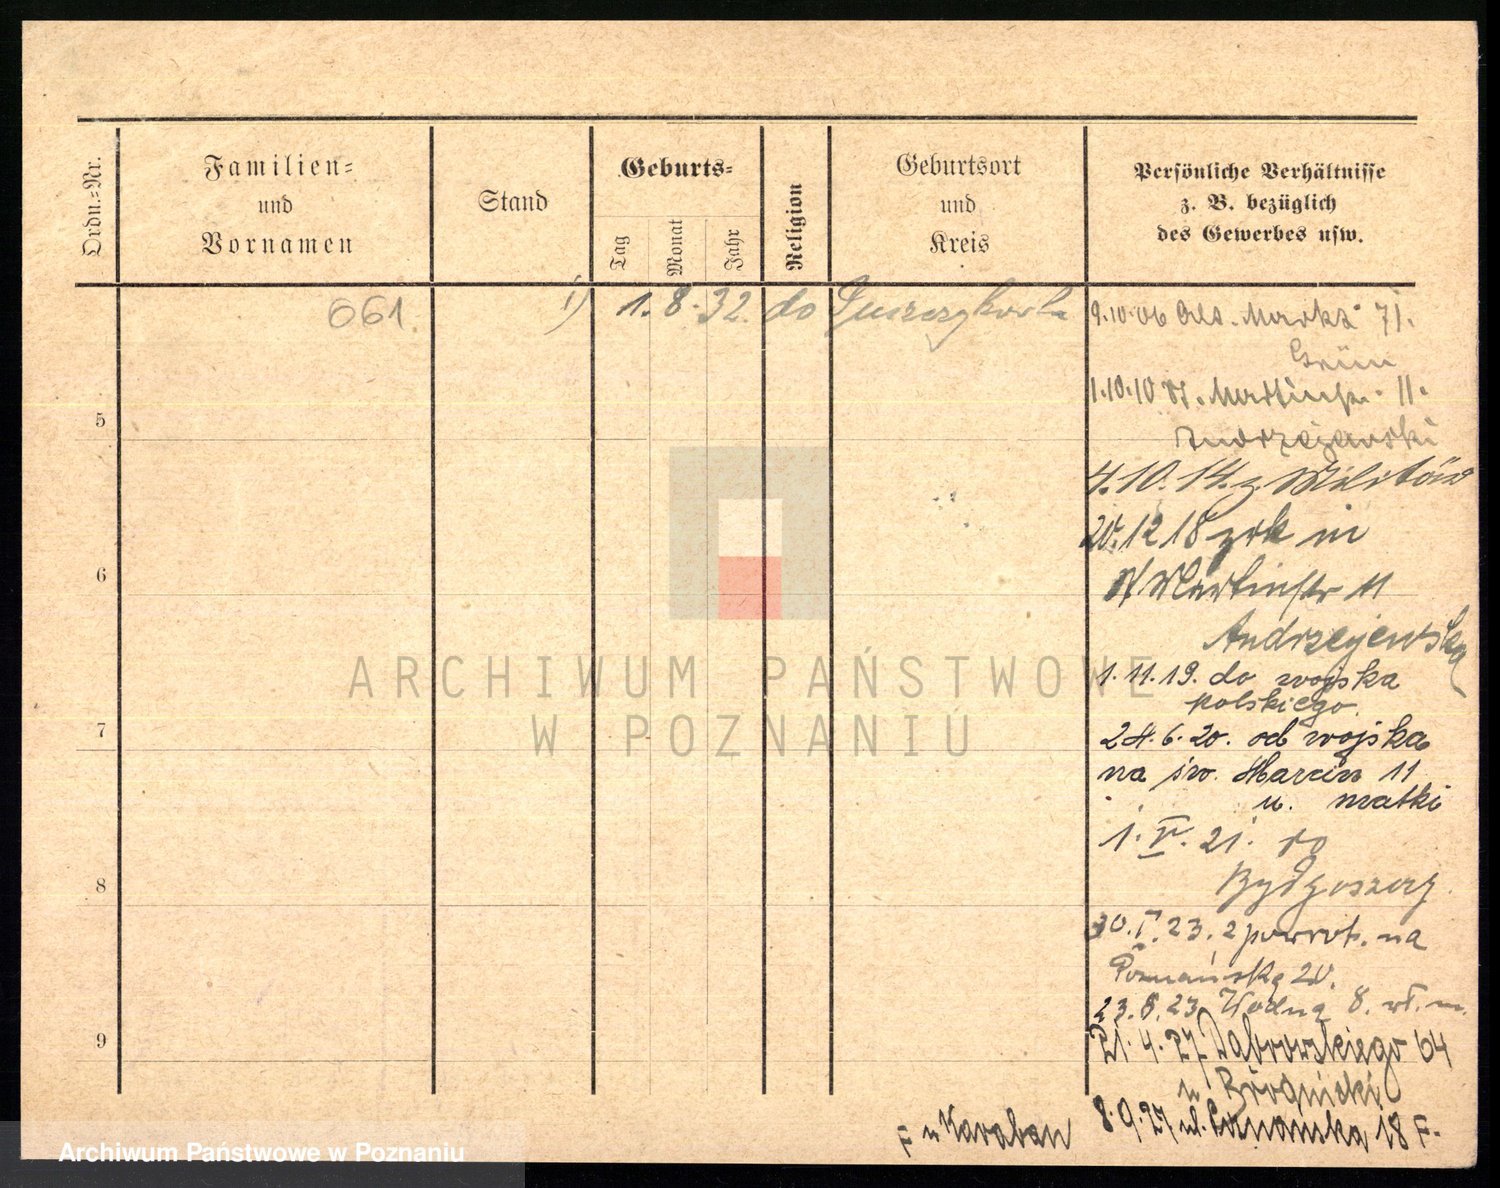 Ordn.-Nr.
Familien-
und
Vornamen
Stand
Geburts-
Tag
Monat
Jahr
Religion
Geburtsort
und
Kreis
Persönliche Verhältnisse
z. B. bezüglich
des Gewerbes usw.
061.
1) 1. 8. 32. do
9.10.06 Alt. Markt 71.
Grün
1.10.10 St. Martinstr. 11.
Andrzejewski
4.10.14. z. Militär
20.12 18 zrk in
St Martinstr 11
Andrzejewska
1.11.19. do wojska
polskiego.
24.6.20. od wojska
na św. Marcin 11
u. matki
1.V.21. do
Bydgoszczy.
30.I.23. z powrot. na
Poznańską 20.
23.8.23 Wodną 8. wł. m.
21.4.27 Dąbrowskiego 64
u
8.9.27 ul. 18 F.
F u Karaban
5
6
7
8
9
ARCHIWUM PAŃSTWOWE
W POZNANIU
Archiwum Państwowe w Poznaniu